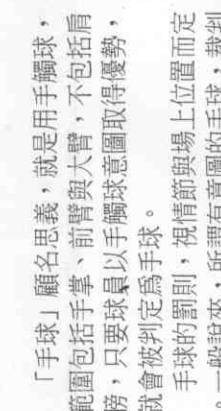 「手球」顧名思義，就是用手觸球，
範圍包括手掌、前臂與大臂，不包括肩
膀，只要球員以手觸球意圖取得優勢，
就會被判定為手球。
手球的罰則，視情節與場上位置而定
。一般說來，所謂有意圖的手球，裁判